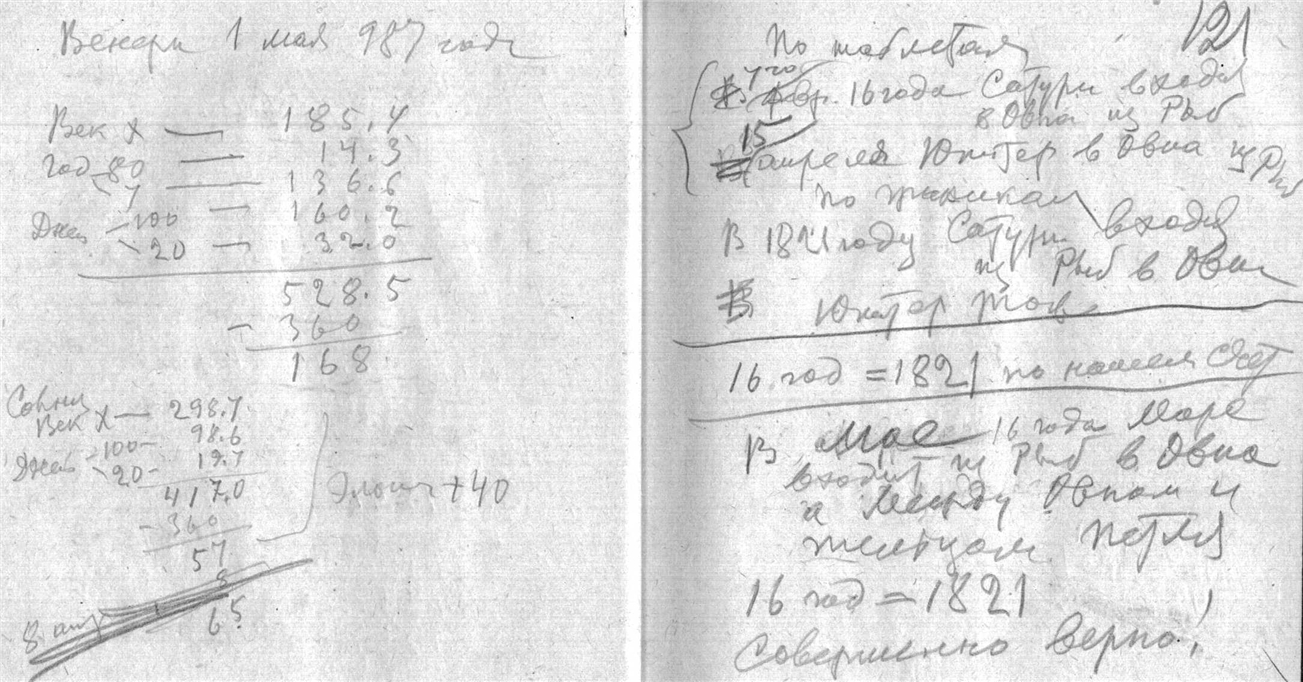 Венера 1 мая 987 года
Век X — 185.4
Год 80 — 14.3
7 — 136.6
Дней 100 — 160.2
20 — 32.0
528.5
- 360
168
Солнц
Век X — 298.7
Дней 100 - 98.6
20 - 19.7
417.0
- 360
57
8
65
Элонг +40
121
По таблетам
16 года Сатурн входил
в Овна из Рыб
15
апреля Юпитер в Овна из Рыб
В 1821 году Сатурн входил
из Рыб в Овна
Юпитер тож
16 год = 1821 по нашем счет
В Мае 16 года Марс
входил из Рыб в Овна
а между Овном и
тельцом петля
16 год = 1821
Совершенно верно!